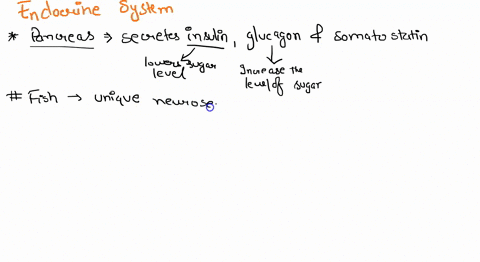 Endocrine System
* Pancreas → secretes insulin, glucagon & somatostatin
lowers sugar level
Increase the level of sugar
# Fish → unique neurose